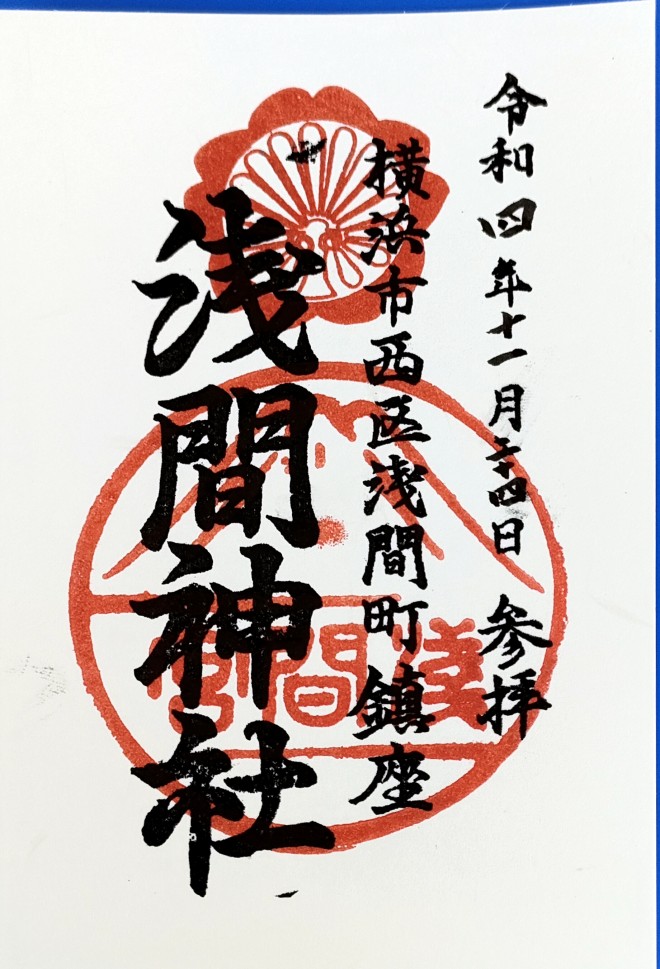 令和四年十一月二十四日 参拝
横浜市西区浅間町鎮座
浅間神社
浅間宮